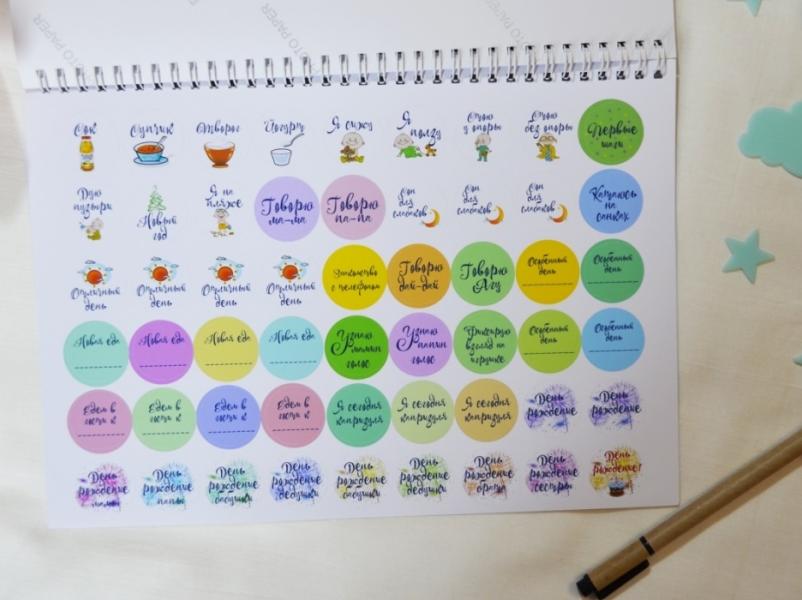 PHOTO PAPER
PHOTO PAPER
PHOTO PAPER
Сок
Супчик
Творог
Йогурт
Я сижу
Я
ползу
Стою
у опоры
Стою
без опоры
Первые
шаги
Дую
пузыри
Новый
год
Я на
пляже
Говорю
ма-ма
Говорю
па-па
Сон
для
слабаков
Сон
для
слабаков
Сон
для
слабаков
Катаюсь
на
санках
Отличный
день
Отличный
день
Отличный
день
Отличный
день
Знакомство
с телефоном
Говорю
дай-дай
Говорю
Агу
Особенный
день
Особенный
день
Новая еда
Новая еда
Новая еда
Новая еда
Узнаю
мамин
голос
Узнаю
папин
голос
Фиксирую
взгляд на
игрушке
Особенный
день
Особенный
день
Едем в
гости к
Едем в
гости к
Едем в
гости к
Едем в
гости к
Я сегодня
капризуля
Я сегодня
капризуля
Я сегодня
капризуля
День
рождение
День
рождение
День
рождение
мамы
День
рождение
папы
День
рождение
бабушки
День
рождение
дедушки
День
рождение
бабушки
День
рождение
дедушки
День
рождение
брата
День
рождение
сестры
День
рождение!